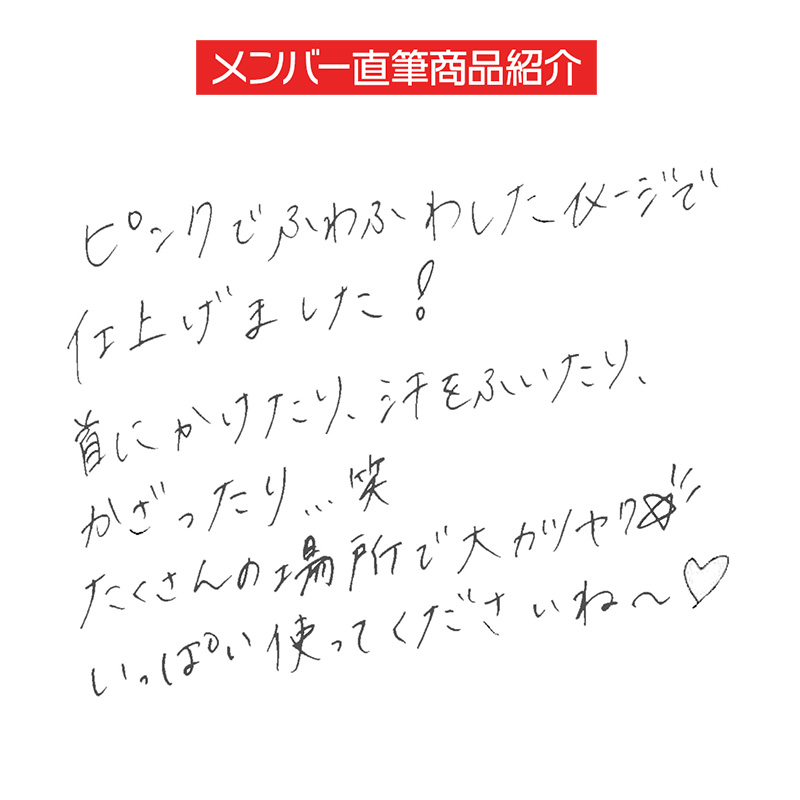 メンバー直筆商品紹介
ピンクでふわふわしたイメージで
仕上げました!
首にかけたり、汗をふいたり、
かざったり…笑
たくさんの場所で大カツヤク☆
いっぱい使ってくださいね〜♡